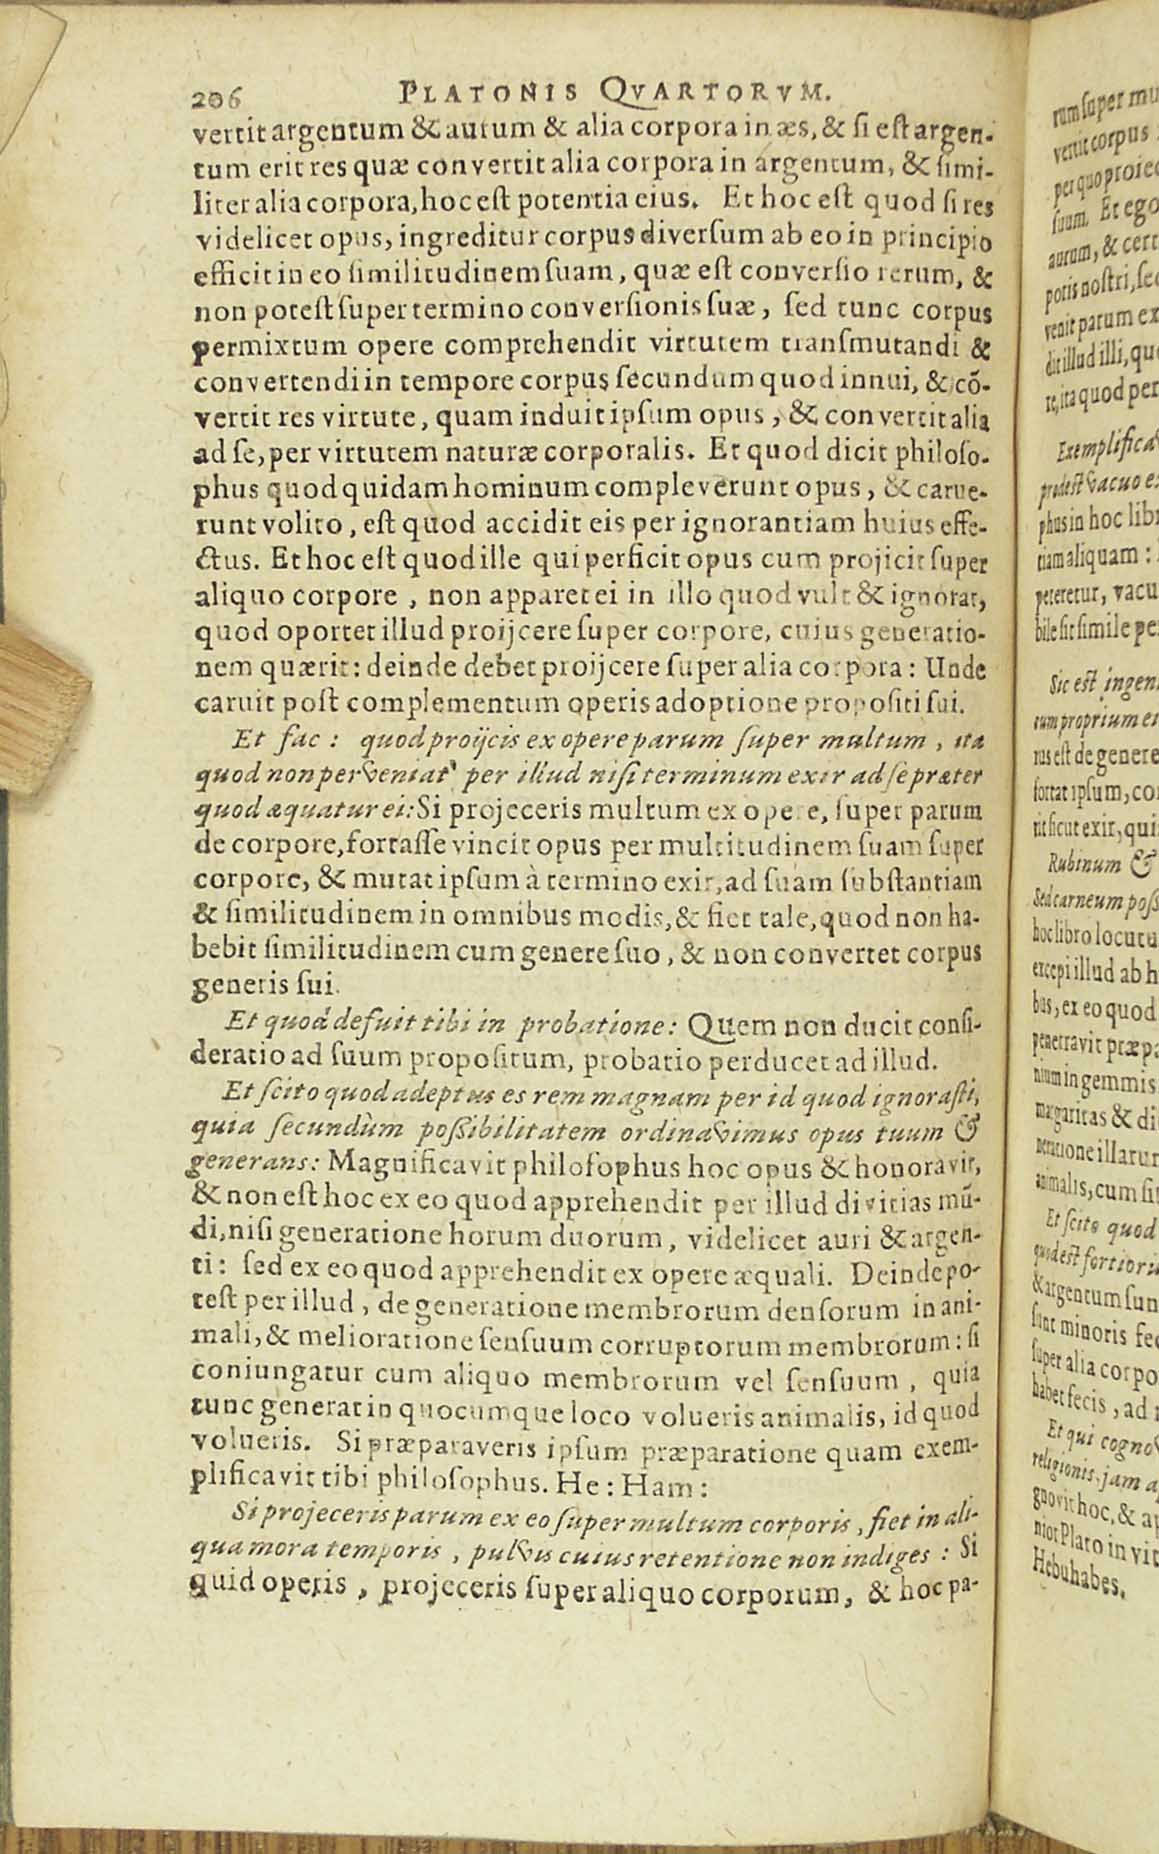 206 PLATONIS QVARTORVM.
vertit argentum & aurum & alia corpora in æs, & si est argen-
tum erit res quæ convertit alia corpora in argentum, & simi-
liter alia corpora, hoc est potentia eius. Et hoc est quod si res
videlicet opus, ingreditur corpus diversum ab eo in principio
efficit in eo similitudinem suam, quæ est conversio rerum, &
non potest super termino conversionis suæ, sed tunc corpus
permixtum opere comprehendit virtutem transmutandi &
convertendi in tempore corpus secundum quod innui, & cõ-
vertit res virtute, quam induit ipsum opus, & convertit alia
ad se, per virtutem naturæ corporalis. Et quod dicit philoso-
phus quod quidam hominum compleverunt opus, & carue-
runt volito, est quod accidit eis per ignorantiam huius effe-
ctus. Et hoc est quod ille qui perficit opus cum projicit super
aliquo corpore, non apparet ei in illo quod vult & ignorat,
quod oportet illud proijcere super corpore, cuius generatio-
nem quærit: deinde debet proijcere super alia corpora: Unde
caruit post complementum operis adoptione propositi sui.
Et fac: quod proijcis ex opere parum super multum, ita
quod non perveniat per illud nisi terminum exir ad se præter
quod æquatur ei: Si projeceris multum ex opere, super parum
de corpore, fortasse vincit opus per multitudinem suam super
corpore, & mutat ipsum à termino exir, ad suam substantiam
& similitudinem in omnibus modis, & fiet tale, quod non ha-
bebit similitudinem cum genere suo, & non convertet corpus
generis sui.
Et quod defuit tibi in probatione: Quem non ducit consi-
deratio ad suum propositum, probatio perducet ad illud.
Et scito quod adeptus es rem magnam per id quod ignorasti,
quia secundùm possibilitatem ordinavimus opus tuum &
generans: Magnificavit philosophus hoc opus & honoravit,
& non est hoc ex eo quod apprehendit per illud divitias mũ-
di, nisi generatione horum duorum, videlicet auri & argen-
ti: sed ex eo quod apprehendit ex opere æquali. Deinde po-
test per illud, de generatione membrorum densorum in ani-
mali, & melioratione sensuum corruptorum membrorum: si
coniungatur cum aliquo membrorum vel sensuum, quia
tunc generat in quocumque loco volueris animalis, id quod
volueris. Si præparaveris ipsum præparatione quam exem-
plificavit tibi philosophus. He: Ham:
Si projeceris parum ex eo super multum corporis, fiet in ali-
qua mora temporis, pulvis cuius retentione non indiges: Si
quid operis, projeceris super aliquo corporum, & hoc pa-
rum super mu
vertit corpus
per quo proiec
suum. Et ego
aurum, & cert
potis nostri, sed
venit parum ex
dit illud illi, quo
re, ita quod per
Exemplifica
prodest vacuo e
phus in hoc lib
tiam aliquam:
peteretur, vacu
bile sit simile pe
Sic est ingen
cum proprium e
rus est de genere
fortat ipsum, co
rit sicut exit, qui
Rubinum &
Sed carneum poss
hoc libro locutu
excepi illud ab h
bus, ex eo quod
penetravit præp
nium in gemmis
margaritas & di
neratione illarum
animalis, cum sit
Et scito quod
quod est fortioris
& argentum sun
sunt minoris fec
super alia corpo
habet fecis, ad
Et qui cognov
religionis, jam a
gnovit hoc, & a
niot Plato in vit
Hebuhabes.